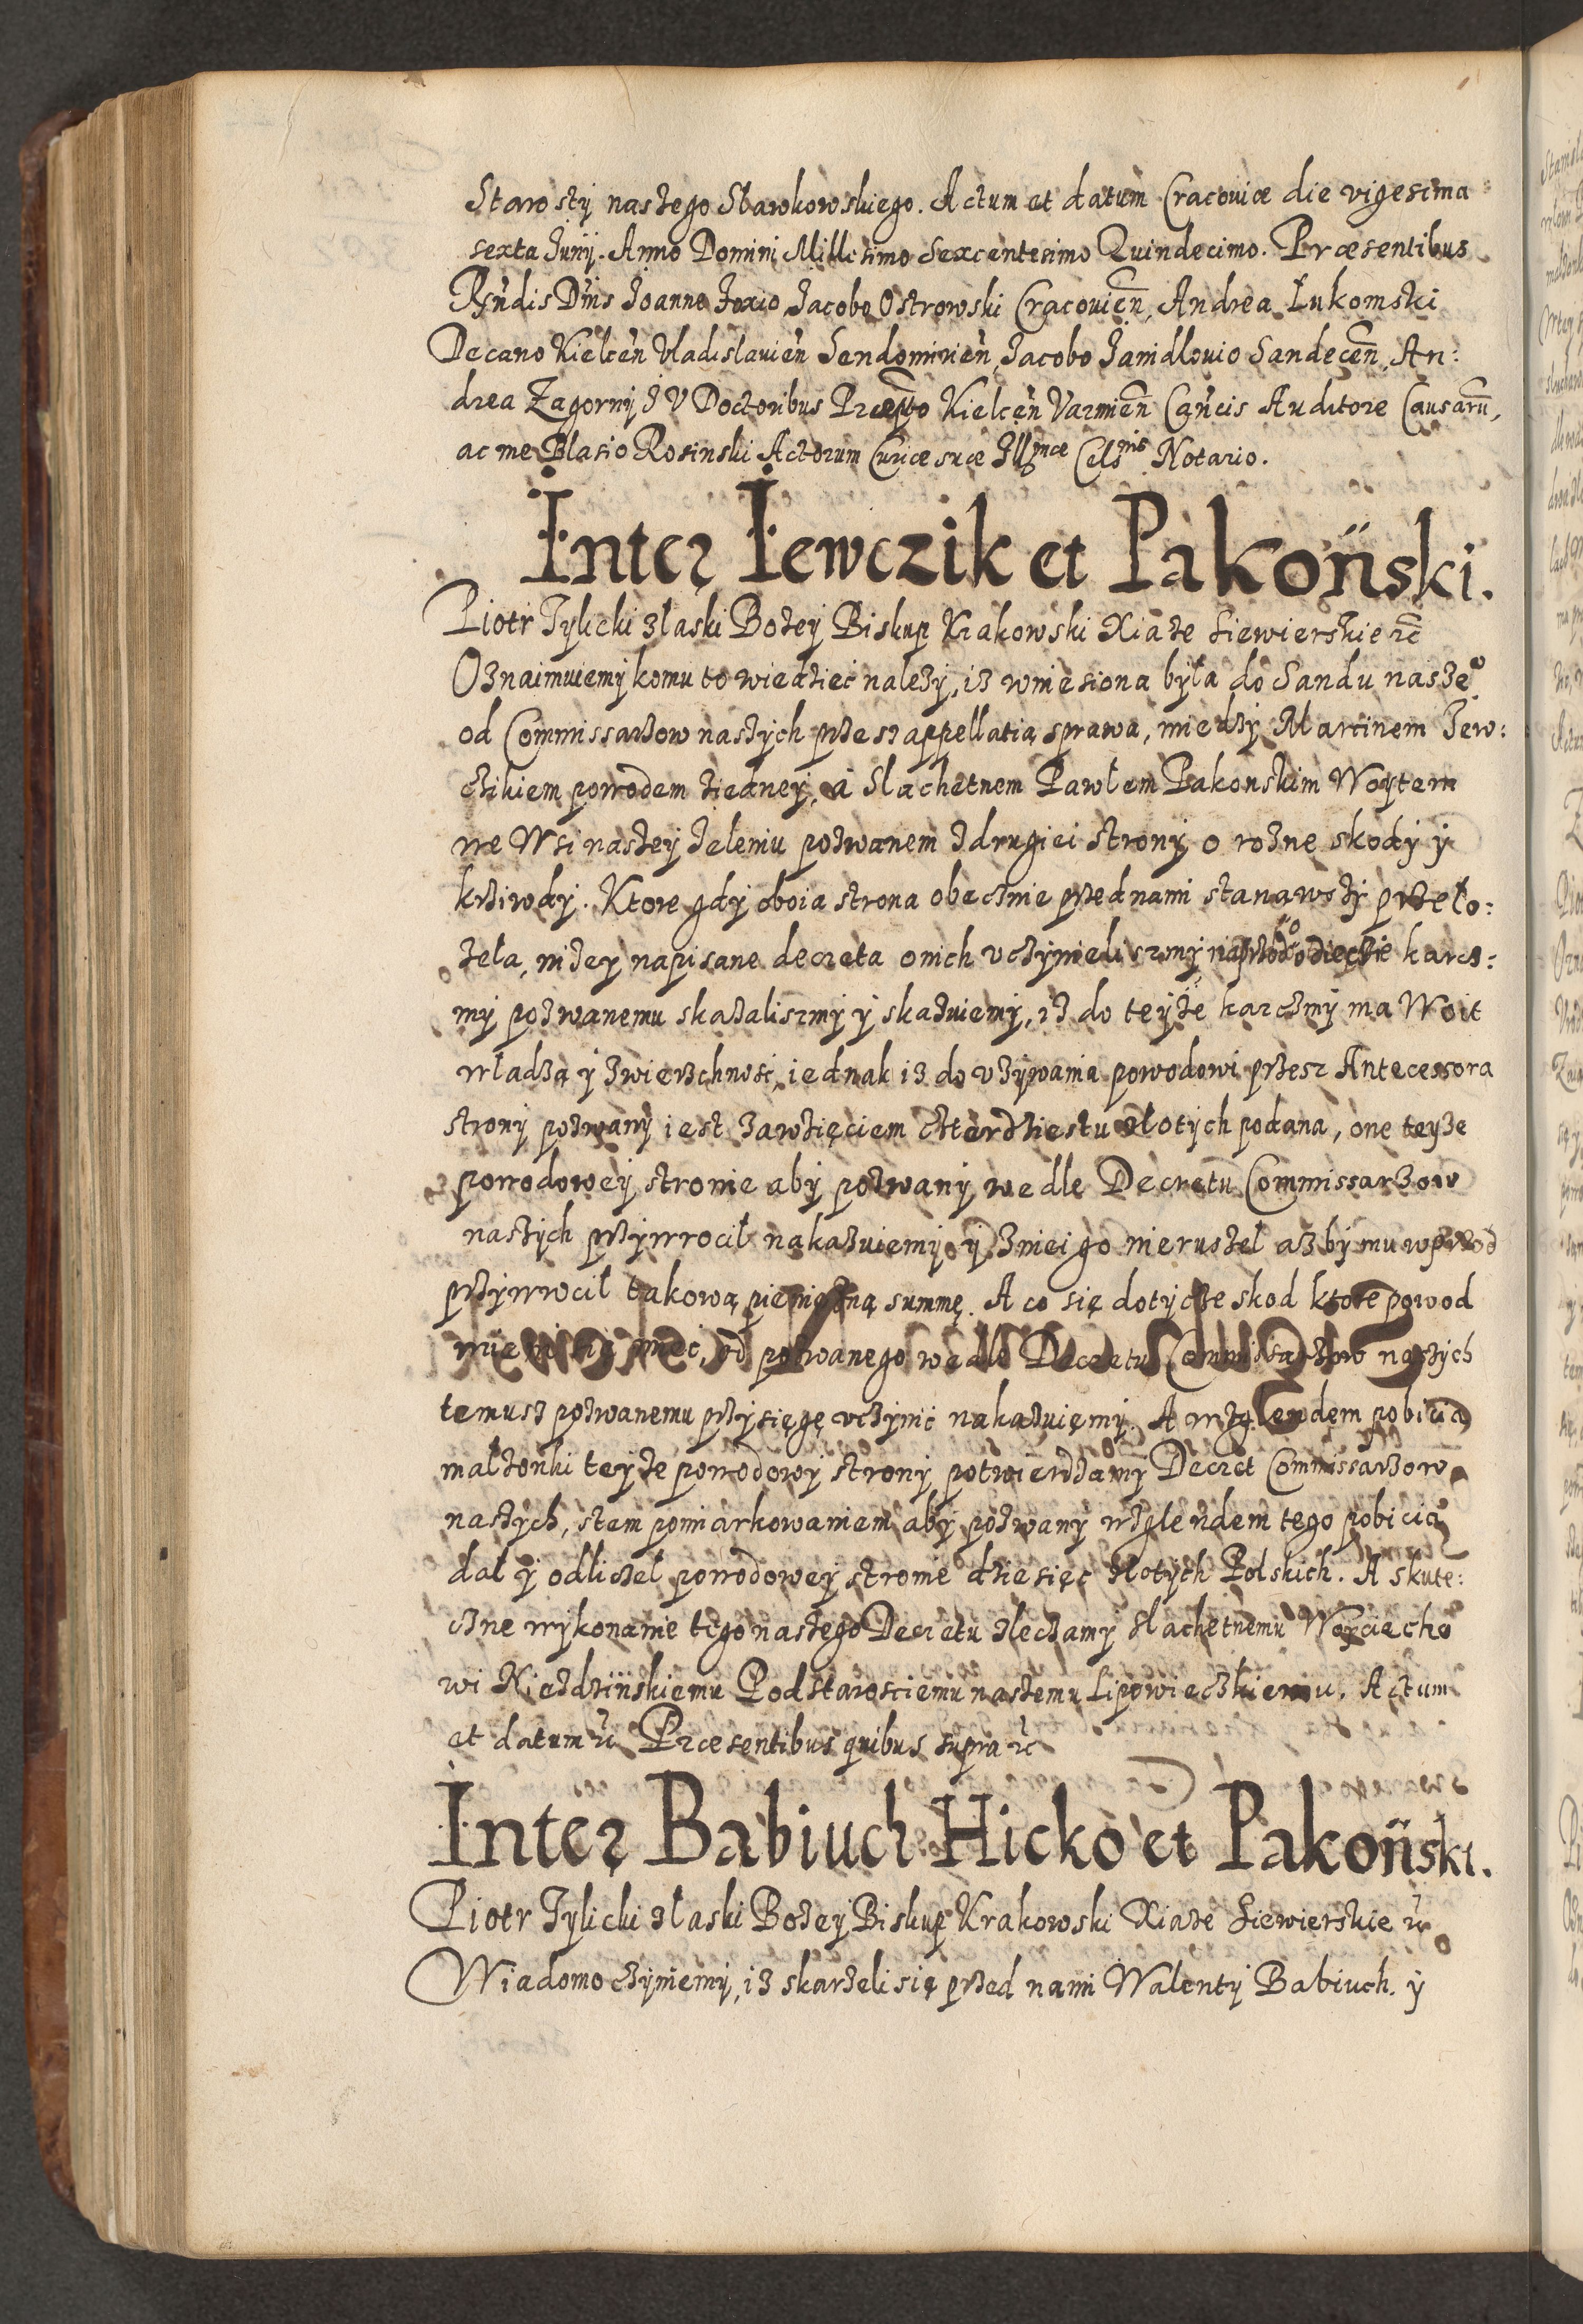 Starosty naszego Sławkowskiego. Actum et datum Cracoviæ die vigesima
sexta Junij. Anno Domini Millesimo Sexcentesimo Quindecimo. Præsentibus
Rñdis Dñis Joanne Foxio, Jacobo Ostrowski Cracovieñ, Andrea Łukomski
Decano Kielceñ Vladislavieñ Sendomirieñ, Jacobo Janidlovio Sandeceñ, An:
drea Zagorny J V Doctoribus Præpto Kielceñ Varmieñ Cañcis Auditore Causarũ,
ac me Blasio Rosinski Actorum Curiæ suæ Illmæ Celsnis Notario.
Inter Iewczik et Pakoński.
Piotr Tylicki z łaski Bozey Biskup Krakowski Xiąze Siewierskie ꝛc̃
Oznaimuiemy komu to wiedzieć nalezy, iz wniesiona była do Sandu nasze°
od Commissarzow naszych przesz appellatią sprawa, miedzy Marcinem Jew:
czikiem powodem z iedney, a Slachetnem Pawłem Pakonskim Woytem
we Wsi naszey Jeleniu pozwanem z drugiei strony o rozne skody y
krziwdy. Ktore gdy oboia strona obecznie przed nami stanąwszy przeło:
zeła, nizey napisane decreta o nich uczynieliszmy naprzod o dięcie karcz:
my pozwanemu skazaliszmy y skazuiemy, iz do teyze karczmy ma Woit
władzą y zwierzchność, iednak iz do uzywania powodowi przesz Antecessora
strony pozwany iest zawzięciem czterdziestu złotych podana, one teyze
powodowey stronie aby pozwany wedle Decretu Commissarzow
naszych przywrocił nakazuiemy y z niei go nie ruszeł azby mu wprzod
przywrocił takową pieniezną summę. A co się dotycze skod ktore powod
mieni się miec, od pozwanego wedle Decretu Commissarzow naszych
temusz pozwanemu przysięgę uczynić nakazuięmy. A względem pobicia
małzonki teyze powodowy strony potwierdzamy Decret Commissarzow
naszych, stem pomiarkowaniem aby pozwany wzglendem tego pobicia
dał y odliczeł powodowey stronie dziesięc złotych Polskich. A skute:
czne wykonanie tego naszego Decretu zleczamy Slachetnemu Woyciecho
wi Niezdzińskiemu Podstarosciemu naszemu Lipowieczkiemu. Actum
et datum ꝛc̃ Præsentibus quibus supra ꝛc̃
Inter Babiuch Hicko et Pakoński.
Piotr Tylicki z łaski Bozey Biskup Krakowski Xiąze Siewierskie ꝛc̃
Wiadomo czyniemy, iz skarzeli się przed nami Walenty Babiuch. y